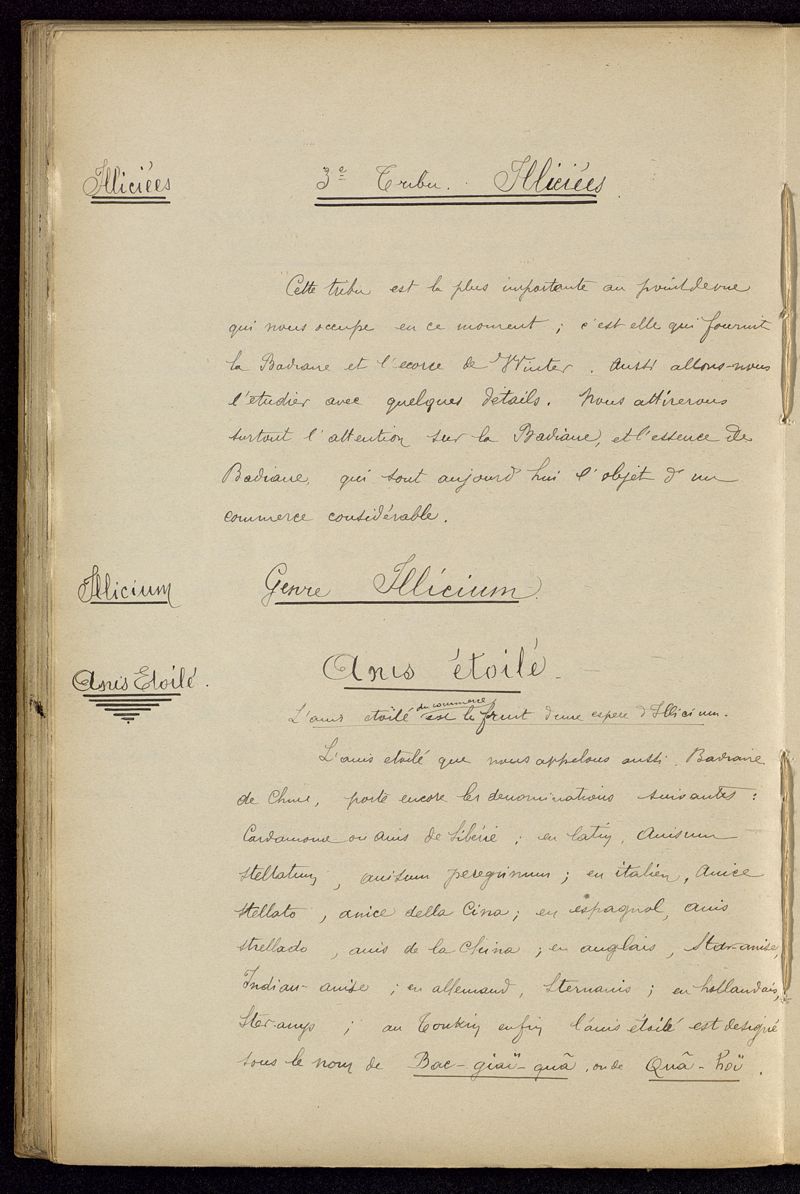 Illiciées
3e Tribu. Illiciées.
Cette tribu est la plus importante au point de vue
qui nous occupe en ce moment ; c'est elle qui fournit
la Badiane et l'écorce de Winter. Aussi allons-nous
l'étudier avec quelques détails. Nous attirerons
surtout l'attention sur la Badiane, et l'essence de
Badiane, qui sont aujourd'hui l'objet d'un
commerce considérable.
Illicium
Genre Illicium.
Anis Etoilé.
Anis étoilé.
L'anis etoilé du commerce est le fruit d'une espece d'Illicium.
L'anis etoilé que nous appelons aussi Badiane
de Chine, porte encore les denominations suivantes :
Cardamome ou anis de Sibérie ; en latin, Anisum
stellatum, anisum peregrinum ; en italien, Anice
stellato, anice della Cina ; en espagnol, anis
strellado, anis de la China ; en anglais, Star-anise,
Indian-anise ; en allemand, Sternanis ; en hollandais,
Ster-anys ; au Tonkin enfin l'anis étoilé est designé
sous le nom de Bac-giaï-quâ, ou de Quâ-hoï.